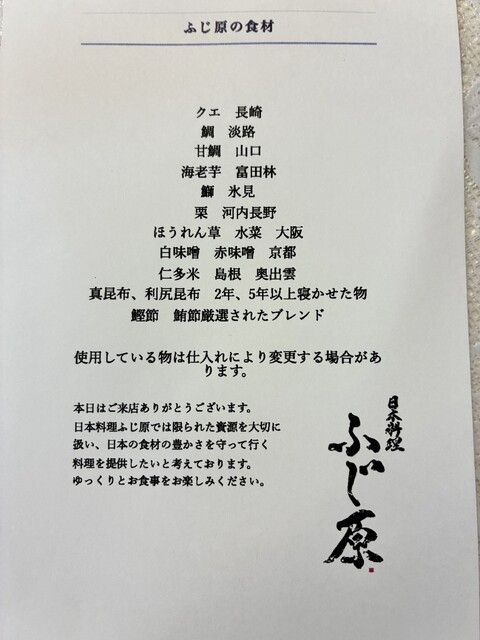 ふじ原の食材
クエ 長崎
鯛 淡路
甘鯛 山口
海老芋 富田林
鰤 氷見
栗 河内長野
ほうれん草 水菜 大阪
白味噌 赤味噌 京都
仁多米 島根 奥出雲
真昆布、利尻昆布 2年、5年以上寝かせた物
鰹節 鮪節厳選されたブレンド
使用している物は仕入れにより変更する場合があ
ります。
本日はご来店ありがとうございます。
日本料理ふじ原では限られた資源を大切に
扱い、日本の食材の豊かさを守って行く
料理を提供したいと考えております。
ゆっくりとお食事をお楽しみください。
日本料理
ふじ原